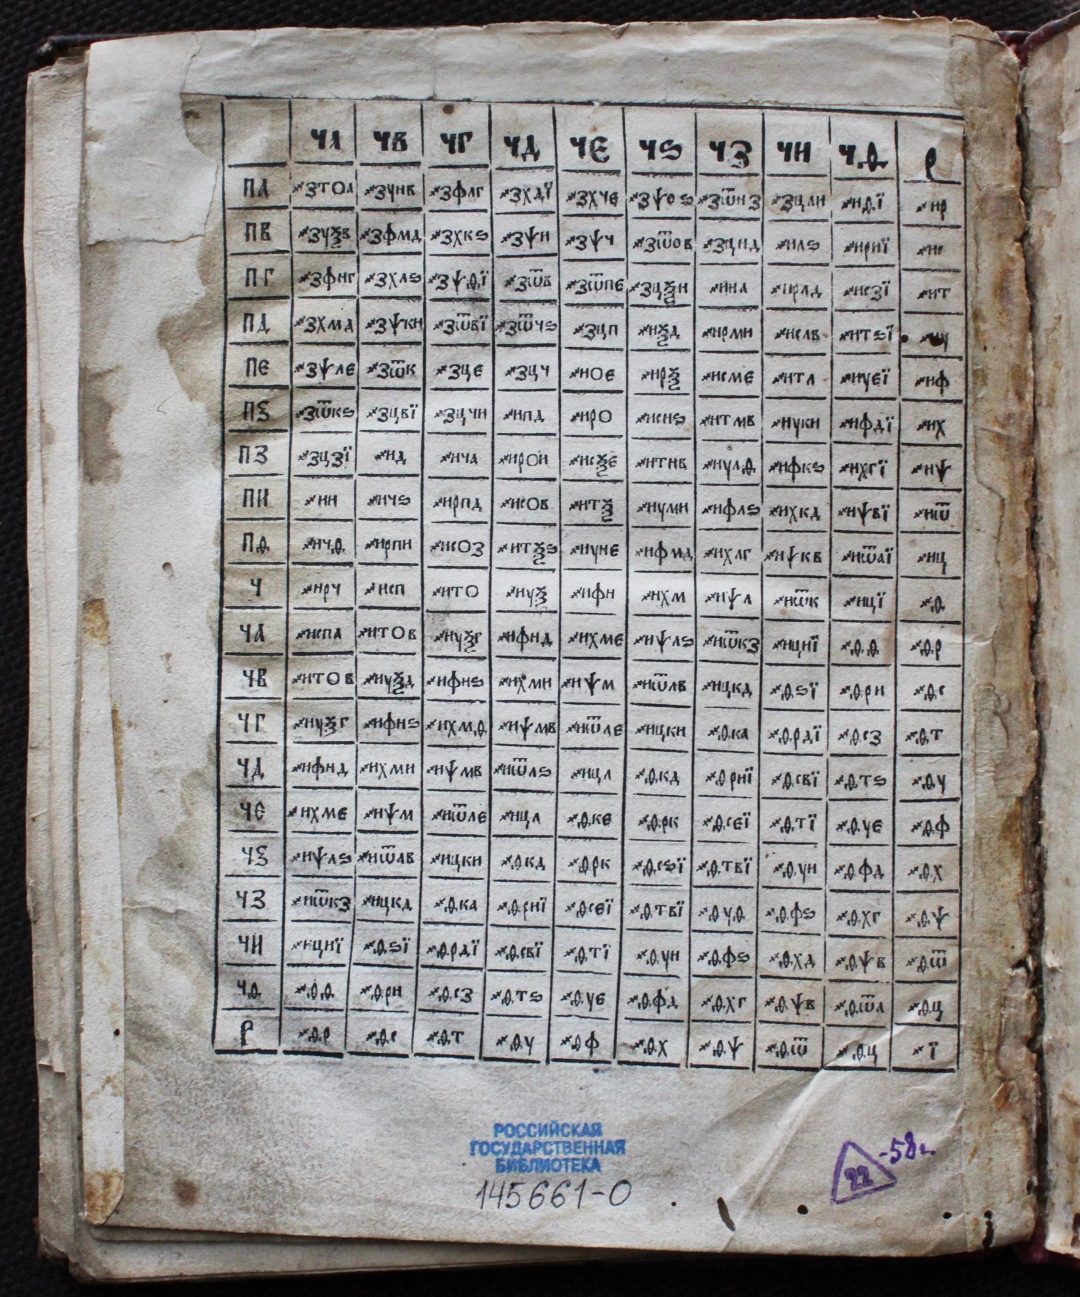 ЧА ЧВ ЧГ ЧД ЧЄ ЧЅ ЧЗ ЧИ ЧѲ Р
ПА ҂зтоа ҂зунв ҂зфлг ҂зхдї ҂зхче ҂зѱоѕ ҂зѿнз ҂зцли ҂иѳї ҂ир
ПВ ҂зуѯв ҂зфмд ҂зхкѕ ҂зѱи ҂зѱч ҂зѿов ҂зцнд ҂илѕ ҂ириї ҂ис
ПГ ҂зфнг ҂зхлѕ ҂зѱѳї ҂зѿв ҂зѿпе ҂зцѯи ҂ина ҂ирлд ҂исзї ҂ит
ПД ҂зхмд ҂зѱки ҂зѿвї ҂зѿчѕ ҂зцп ҂иѯд ҂ирми ҂ислв ҂итѕї ҂иу
ПЄ ҂зѱле ҂зѿк ҂зце ҂зцч ҂иое ҂ирѯ ҂исме ҂итл ҂иуеї ҂иф
ПЅ ҂зѿкѕ ҂зцвї ҂зцчи ҂ипд ҂иро ҂иснѕ ҂итмв ҂иуки ҂ифдї ҂их
ПЗ ҂зцзї ҂ид ҂ича ҂ирои ҂исѯе ҂итнв ҂иулѳ ҂ифкѕ ҂ихгї ҂иѱ
ПИ ҂ии ҂ичѕ ҂ирпд ҂исов ҂итѯ ҂иуми ҂ифлѕ ҂ихкд ҂иѱвї ҂иѿ
ПѲ ҂ичѳ ҂ирпи ҂исоз ҂итѯѕ ҂иуне ҂ифмд ҂ихлг ҂иѱкв ҂иѿаї ҂иц
Ч ҂ирч ҂исп ҂ито ҂иуѯ ҂ифн ҂ихм ҂иѱл ҂иѿк ҂ицї ҂ѳ
ЧА ҂испа ҂итов ҂иуѯг ҂ифнд ҂ихме ҂иѱлѕ ҂иѿкз ҂ициї ҂ѳѳ ҂ѳр
ЧВ ҂итов ҂иуѯд ҂ифнѕ ҂ихми ҂иѱм ҂иѿлв ҂ицкд ҂ѳѕї ҂ѳри ҂ѳс
ЧГ ҂иуѯг ҂ифнѕ ҂ихмѳ ҂иѱмв ҂иѿле ҂ицки ҂ѳка ҂ѳрдї ҂ѳсз ҂ѳт
ЧД ҂ифнд ҂ихми ҂иѱмв ҂иѿлѕ ҂ицл ҂ѳкд ҂ѳриї ҂ѳсвї ҂ѳтѕ ҂ѳу
ЧЄ ҂ихме ҂иѱм ҂иѿле ҂ицл ҂ѳке ҂ѳрк ҂ѳсеї ҂ѳтї ҂ѳуе ҂ѳф
ЧЅ ҂иѱлѕ ҂иѿлв ҂ицки ҂ѳкд ҂ѳрк ҂ѳсѕї ҂ѳтвї ҂ѳуи ҂ѳфд ҂ѳх
ЧЗ ҂иѿкз ҂ицкд ҂ѳка ҂ѳриї ҂ѳсеї ҂ѳтвї ҂ѳуѳ ҂ѳфѕ ҂ѳхг ҂ѳѱ
ЧИ ҂ициї ҂ѳѕї ҂ѳрдї ҂ѳсвї ҂ѳтї ҂ѳуи ҂ѳфѕ ҂ѳхд ҂ѳѱв ҂ѳѿ
ЧѲ ҂ѳѳ ҂ѳри ҂ѳсз ҂ѳтѕ ҂ѳуе ҂ѳфд ҂ѳхг ҂ѳѱв ҂ѳѿа ҂ѳц
Р ҂ѳр ҂ѳс ҂ѳт ҂ѳу ҂ѳф ҂ѳх ҂ѳѱ ҂ѳѿ ҂ѳц ҂ї
РОССИЙСКАЯ
ГОСУДАРСТВЕННАЯ
БИБЛИОТЕКА
145661-О
22 -58г.